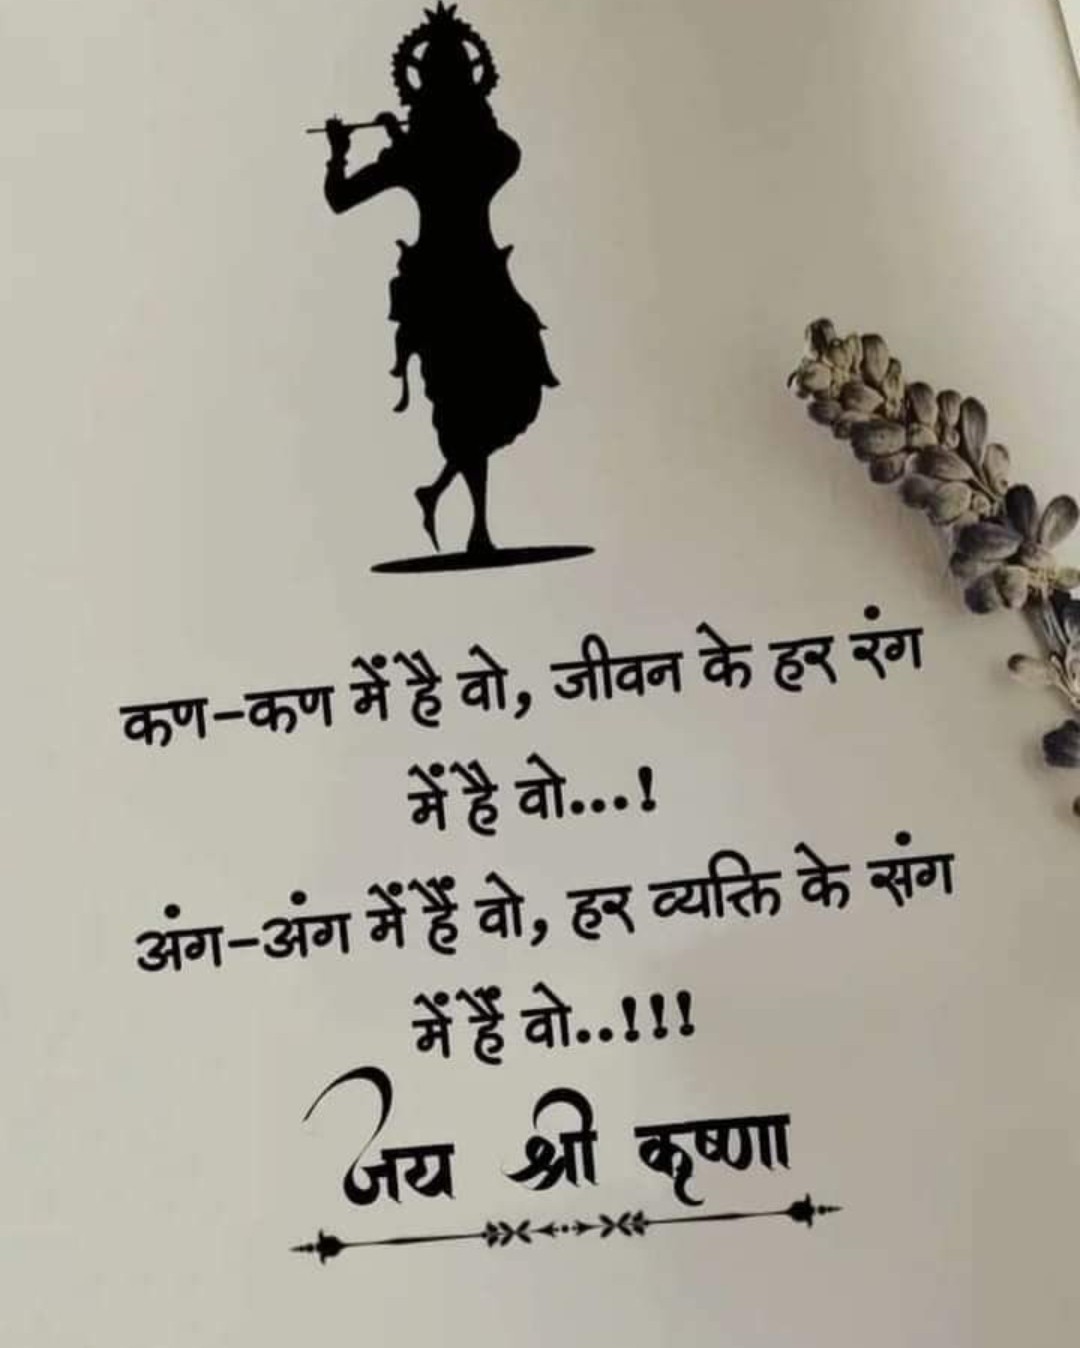 कण-कण में है वो, जीवन के हर रंग
में है वो...!
अंग-अंग में हैं वो, हर व्यक्ति के संग
में हैं वो..!!!
जय श्री कृष्णा